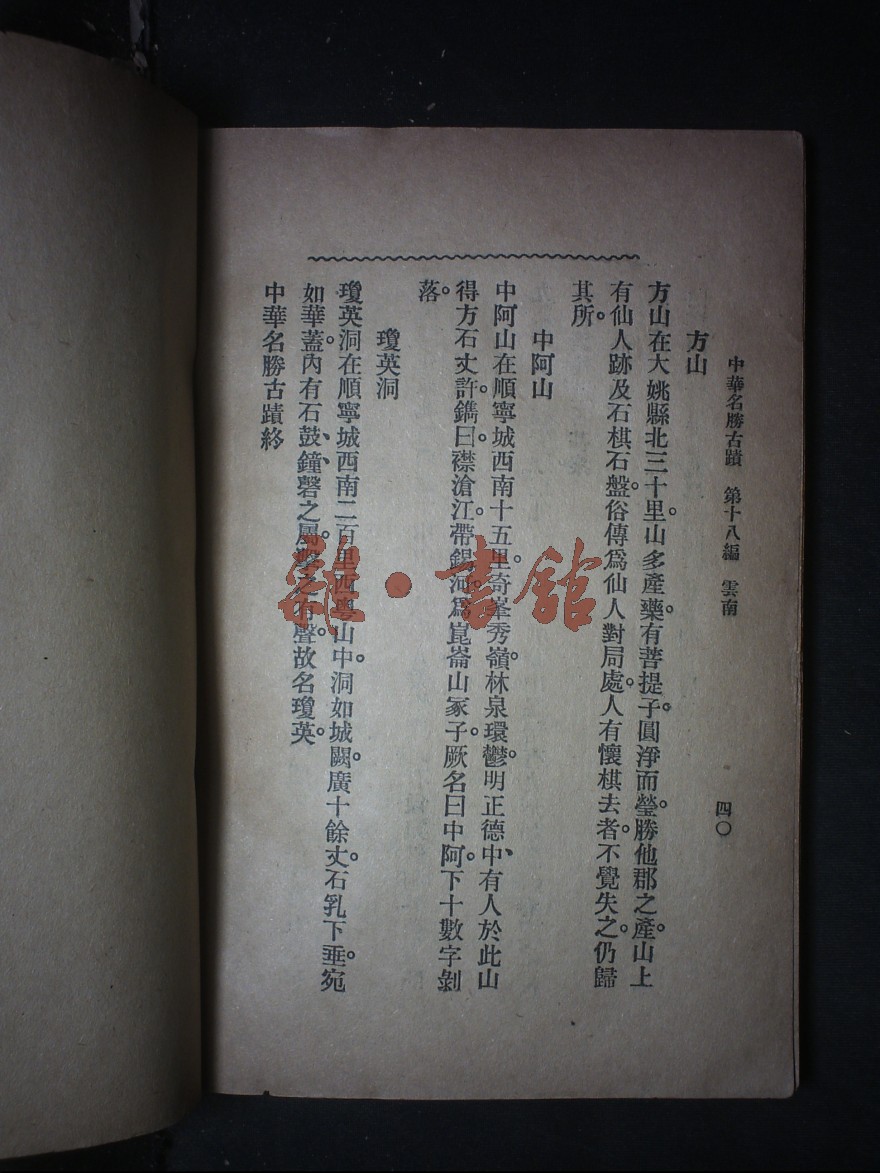 中華名勝古蹟　第十八編　雲南
四〇
方山
方山在大姚縣北三十里。山多產藥。有菩提子。圓淨而瑩。勝他郡之產。山上
有仙人跡及石棋石盤。俗傳爲仙人對局處。人有懷棋去者。不覺失之。仍歸
其所。
中阿山
中阿山在順寧城西南十五里。奇峯秀嶺。林泉環鬱。明正德中、有人於此山
得方石丈許。鐫曰。襟滄江。帶錫河。爲崑崙山冢子。厥名曰中阿。下十數字剝
落。
瓊英洞
瓊英洞在順寧城西南二百里西粵山中。洞如城闕。廣十餘丈。石乳下垂。宛
如華蓋。內有石鼓、鐘、磬之屬。擊之有聲。故名瓊英。
中華名勝古蹟終
雜·書館